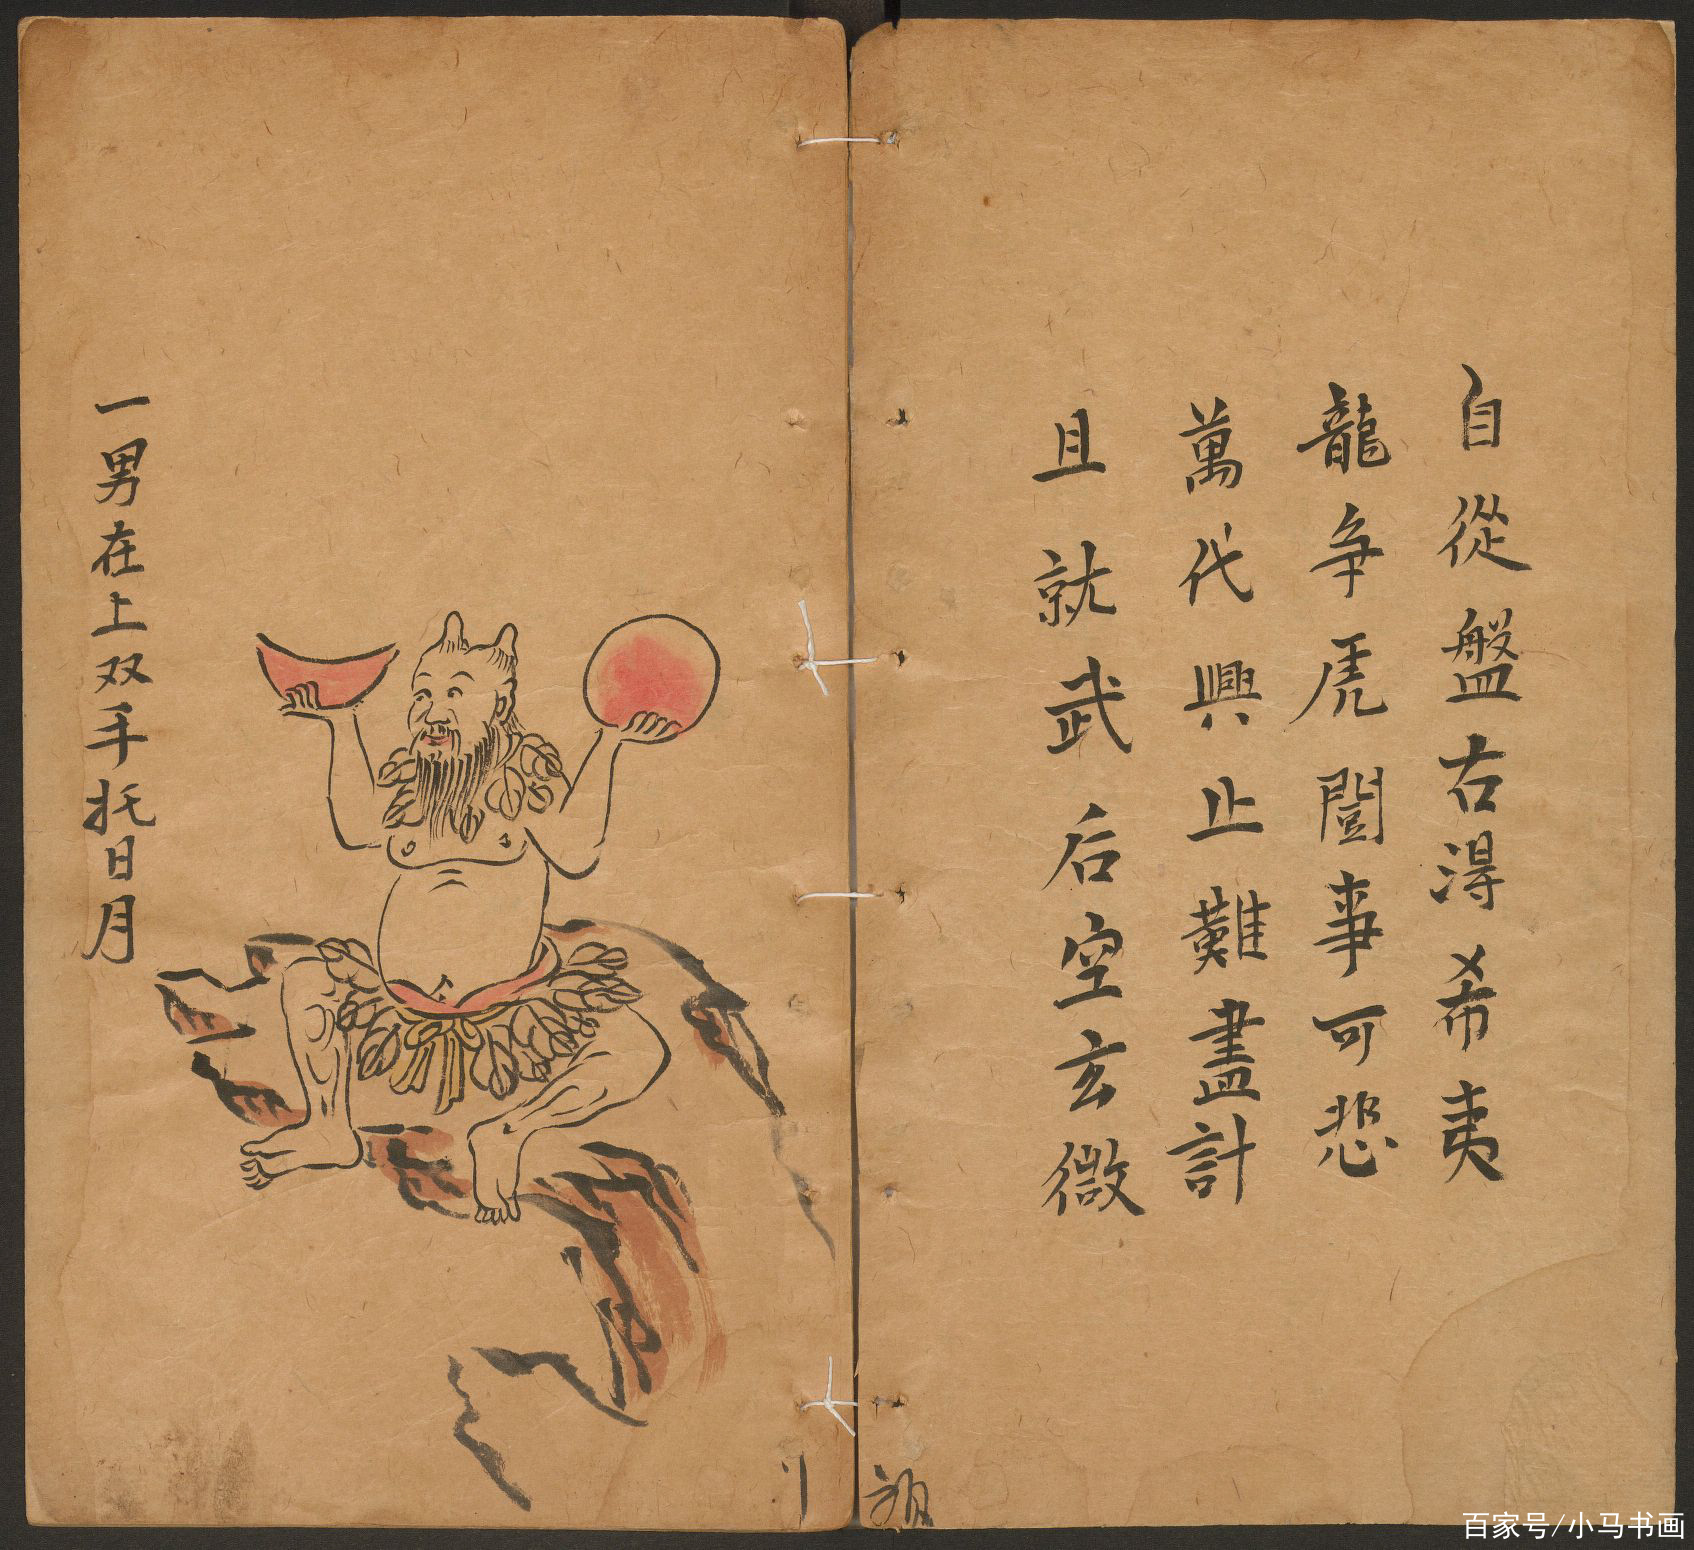 自從盤右淂希夷
龍争虎鬪事可悲
萬代興止難盡計
且就武后空玄微
一男在上双手托日月
百家号/小马书画